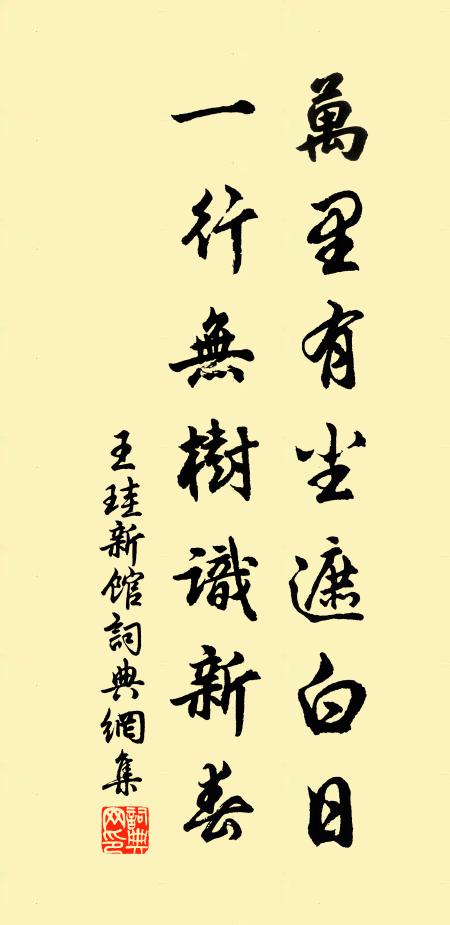 萬里有尘遮白日
一行無樹識新春
王珪新館詞典網集
詞典
网印